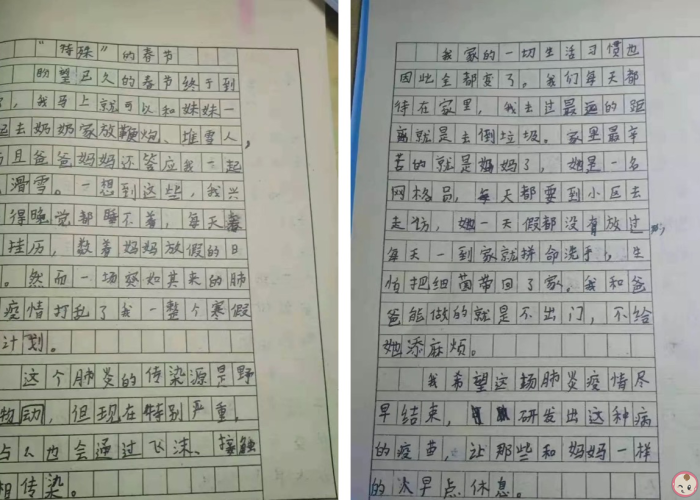 “特殊”的春节
盼望已久的春节终于到
，我马上就可以和妹妹一
去奶奶家放鞭炮、堆雪人，
且爸爸妈妈还答应我一起
滑雪。一想到这些，我兴
得睡觉都睡不着，每天
挂历，数着妈妈放假的日
。然而一场突如其来的肺
疫情打乱了我一整个寒假
计划。
这个肺炎的传染源是野
物，但现在特别严重，
人也会通过飞沫、接触
相传染。
我家的一切生活习惯也
因此全都变了，我们每天都
待在家里，我去过最远的距
离就是去倒垃圾。家里最辛
苦的就是妈妈了，她是一名
网格员，每天都要到小区去
走访，她一天假都没有放过，
每天一到家就拼命洗手，生
怕把细菌带回了家。我和爸
爸能做的就是不出门，不给
她添麻烦。
我希望这场肺炎疫情尽
早结束，研发出这种病
的疫苗，让那些和妈妈一样
的人早点休息。